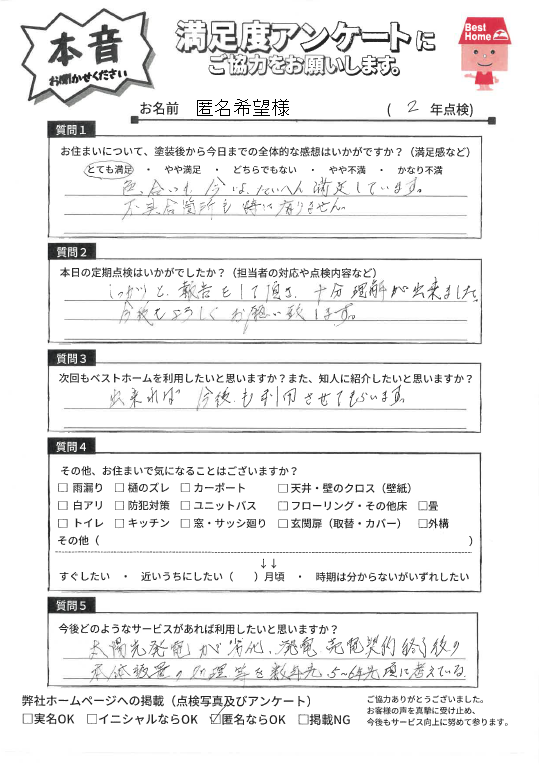 本音
お聞かせください
満足度アンケートに
ご協力をお願いします。
Best
Home
お名前 匿名希望様 ( 2 年点検)
質問1
お住まいについて、塗装後から今日までの全体的な感想はいかがですか?(満足感など)
とても満足 ・ やや満足 ・ どちらでもない ・ やや不満 ・ かなり不満
色合いも 今はたいへん 満足しています。
不具合箇所も 特に有りません。
質問2
本日の定期点検はいかがでしたか?(担当者の対応や点検内容など)
しっかりと 報告をして頂き、十分理解が出来ました。
今後もよろしくお願い致します。
質問3
次回もベストホームを利用したいと思いますか?また、知人に紹介したいと思いますか?
出来れば 今後も利用させてもらいます。
質問4
その他、お住まいで気になることはございますか?
□ 雨漏り □ 樋のズレ □ カーポート □ 天井・壁のクロス(壁紙)
□ 白アリ □ 防犯対策 □ ユニットバス □ フローリング・その他床 □畳
□ トイレ □ キッチン □ 窓・サッシ廻り □ 玄関扉(取替・カバー) □外構
その他( )
↓↓
すぐしたい ・ 近いうちにしたい( )月頃 ・ 時期は分からないがいずれしたい
質問5
今後どのようなサービスがあれば利用したいと思いますか?
太陽光発電が劣化、発電 売電契約終了後の
本体装置の処理等を数年先、5~6年先頃に考えている。
弊社ホームページへの掲載(点検写真及びアンケート)
□実名OK □イニシャルならOK ☑匿名ならOK □掲載NG
ご協力ありがとうございました。
お客様の声を真摯に受け止め、
今後もサービス向上に努めて参ります。